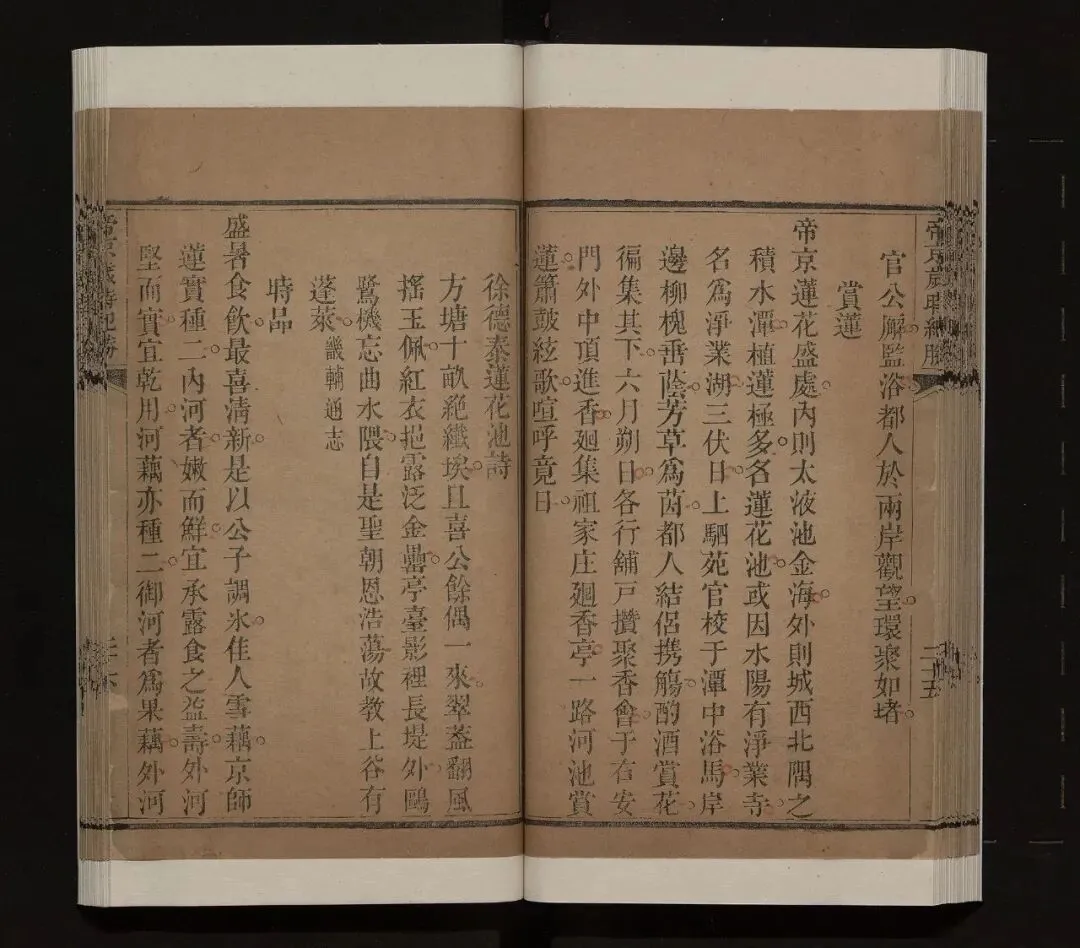 帝京歲時紀勝
二十五
官公廨監浴都人於兩岸觀望環聚如堵
賞蓮
帝京蓮花盛處內則太液池金海外則城西北隅之
積水潭植蓮極多名蓮花池或因水陽有淨業寺
名爲淨業湖三伏日上駟苑官校于潭中浴馬岸
邊柳槐垂蔭芳草爲茵都人結侶携觴酌酒賞花
徧集其下六月朔日各行舖戸攢聚香會于右安
門外中頂進香廻集祖家庄廻香亭一路河池賞
蓮簫鼓絃歌喧呼竟日
徐德泰蓮花池詩
方塘十畝絶纖埃且喜公餘偶一來翠葢翻風
搖玉佩紅衣挹露泛金罍亭臺影裡長堤外鷗
鷺機忘曲水隈自是聖朝恩浩蕩故教上谷有
蓬萊畿輔通志
時品
盛暑食飲最喜淸新是以公子調氷佳人雪藕京師
蓮實種二內河者嫩而鮮宜承露食之益壽外河
堅而實宜乾用河藕亦種二御河者爲果藕外河
帝京歲時紀勝
二十六